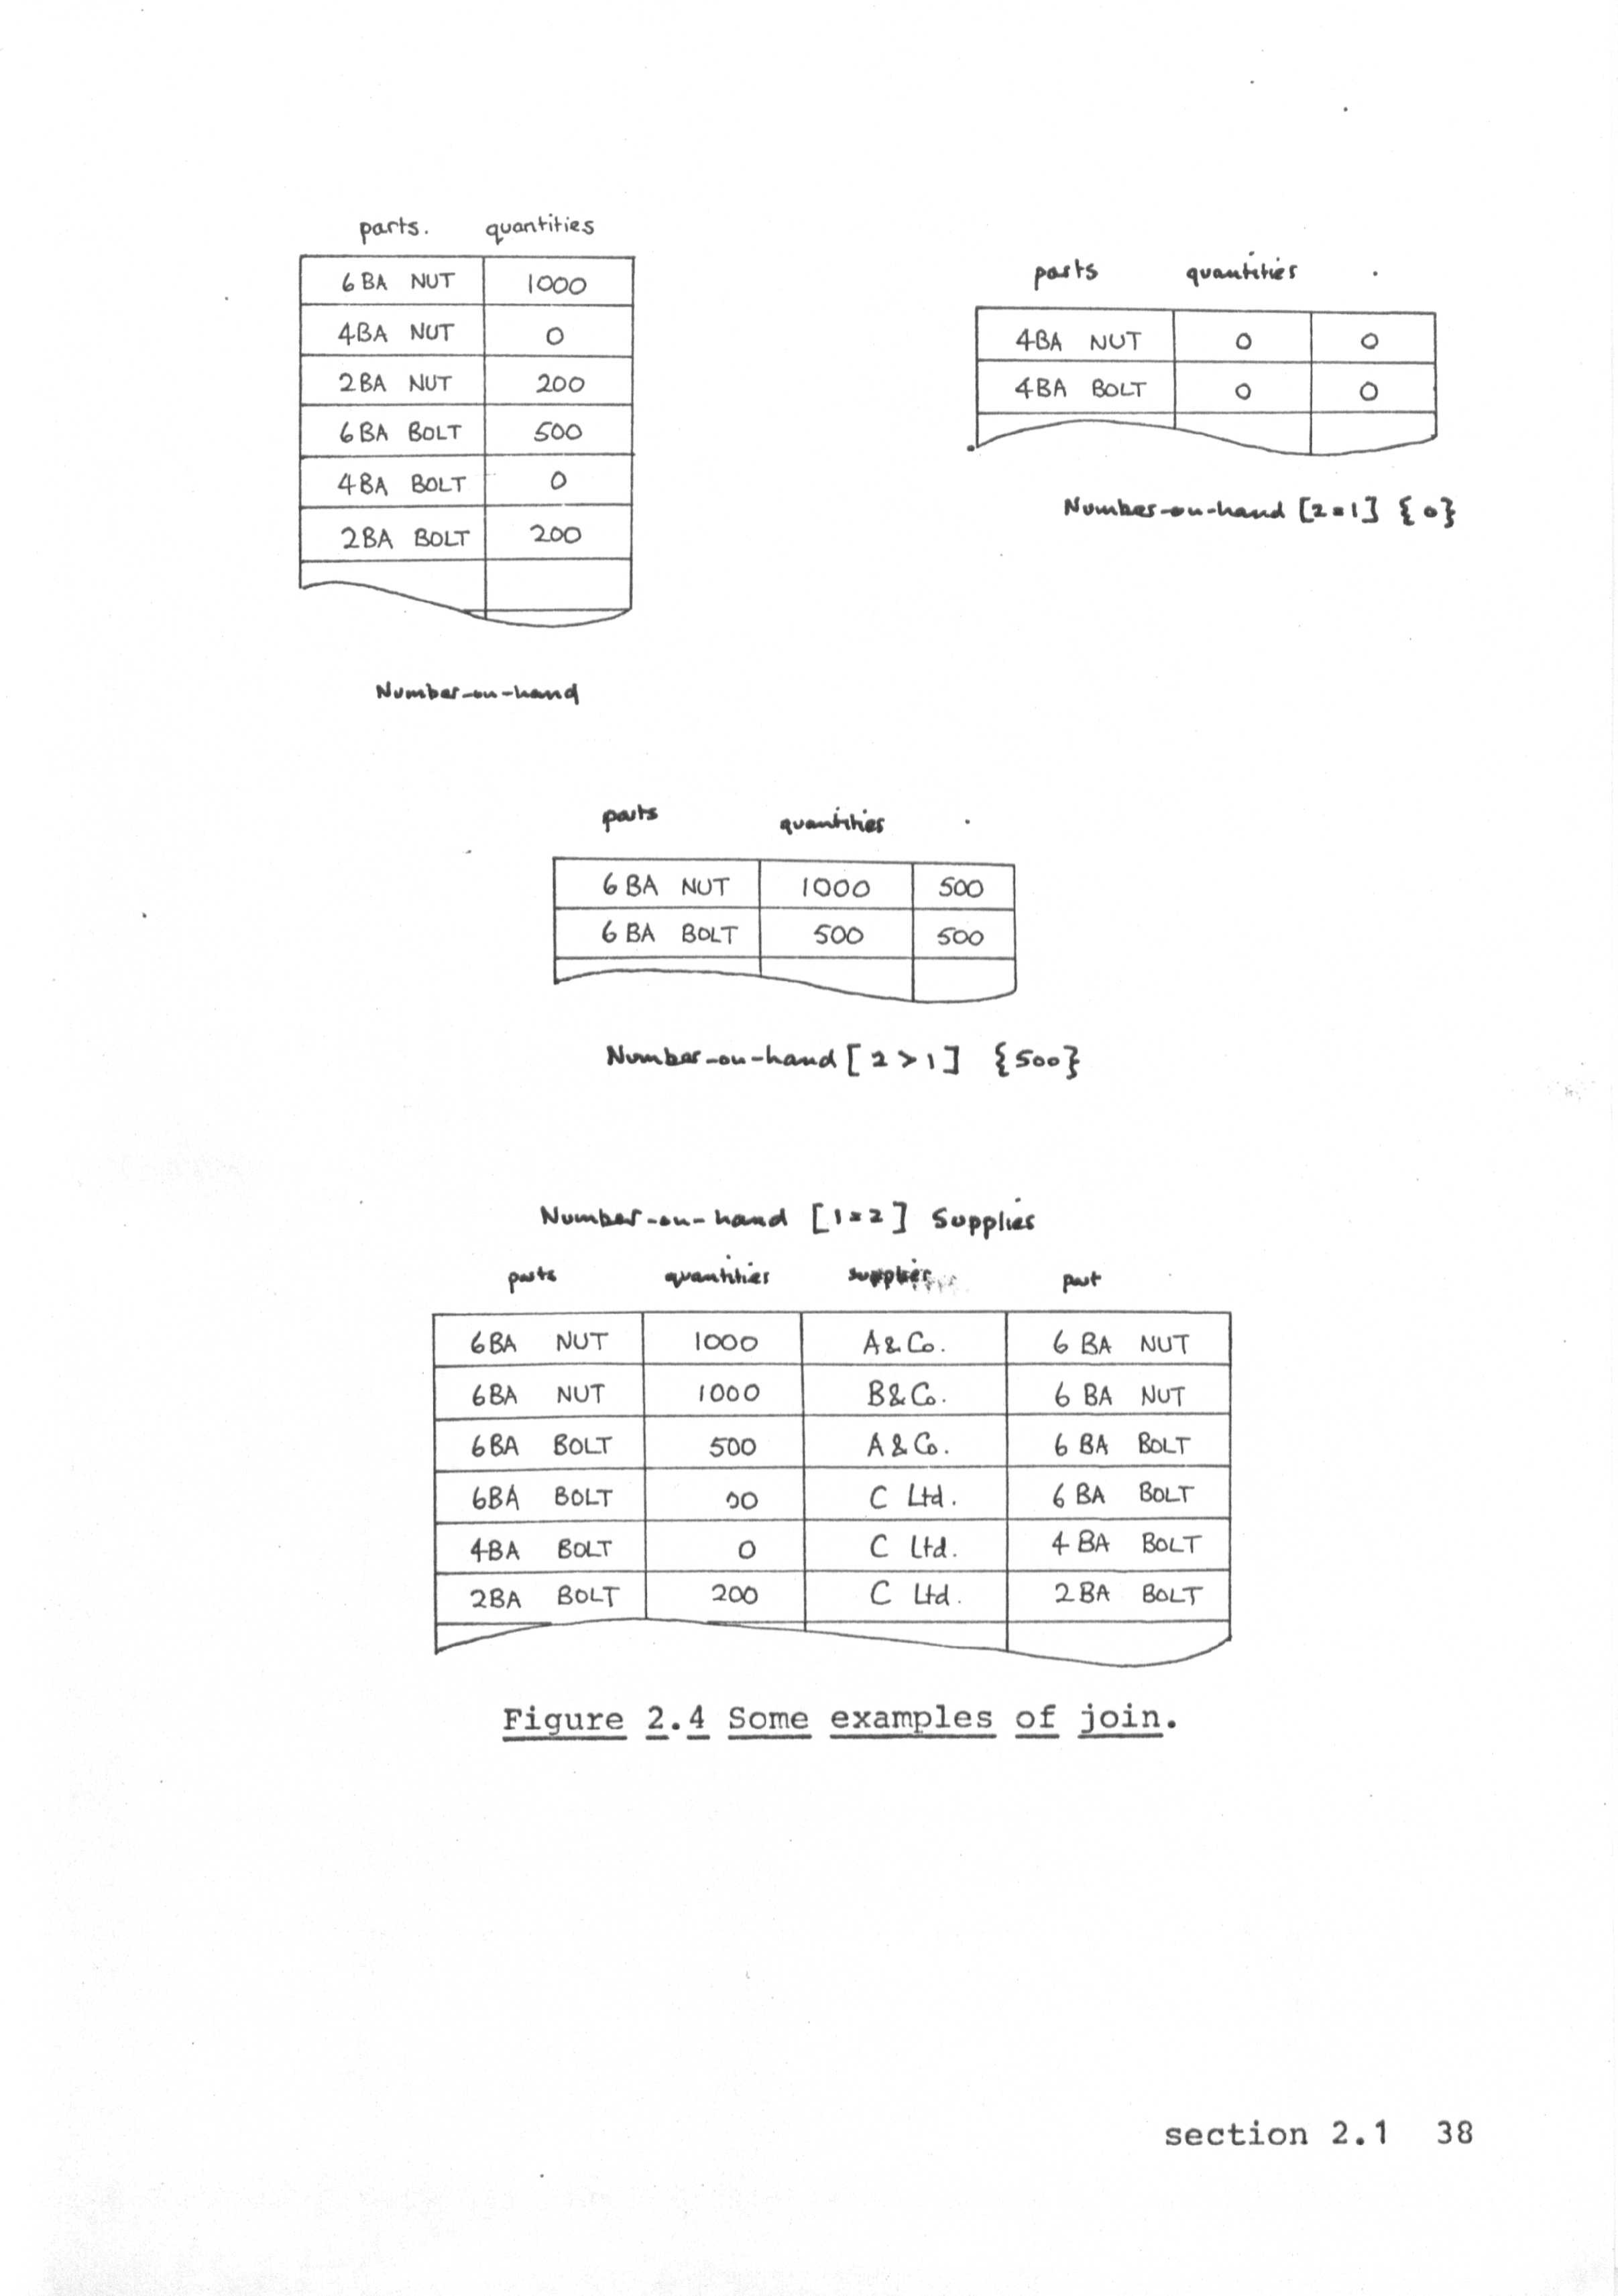 parts. quantities
6BA NUT 1000
4BA NUT 0
2BA NUT 200
6BA BOLT 500
4BA BOLT 0
2BA BOLT 200
Number-on-hand
parts quantities .
4BA NUT 0 0
4BA BOLT 0 0
Number-on-hand [2=1] {0}
parts quantities .
6BA NUT 1000 500
6BA BOLT 500 500
Number-on-hand [2>1] {500}
Number-on-hand [1=2] Supplies
parts quantities supplier part
6BA NUT 1000 A&Co. 6BA NUT
6BA NUT 1000 B&Co. 6BA NUT
6BA BOLT 500 A&Co. 6BA BOLT
6BA BOLT 00 C Ltd. 6BA BOLT
4BA BOLT 0 C Ltd. 4BA BOLT
2BA BOLT 200 C Ltd. 2BA BOLT
Figure 2.4 Some examples of join.
section 2.1 38